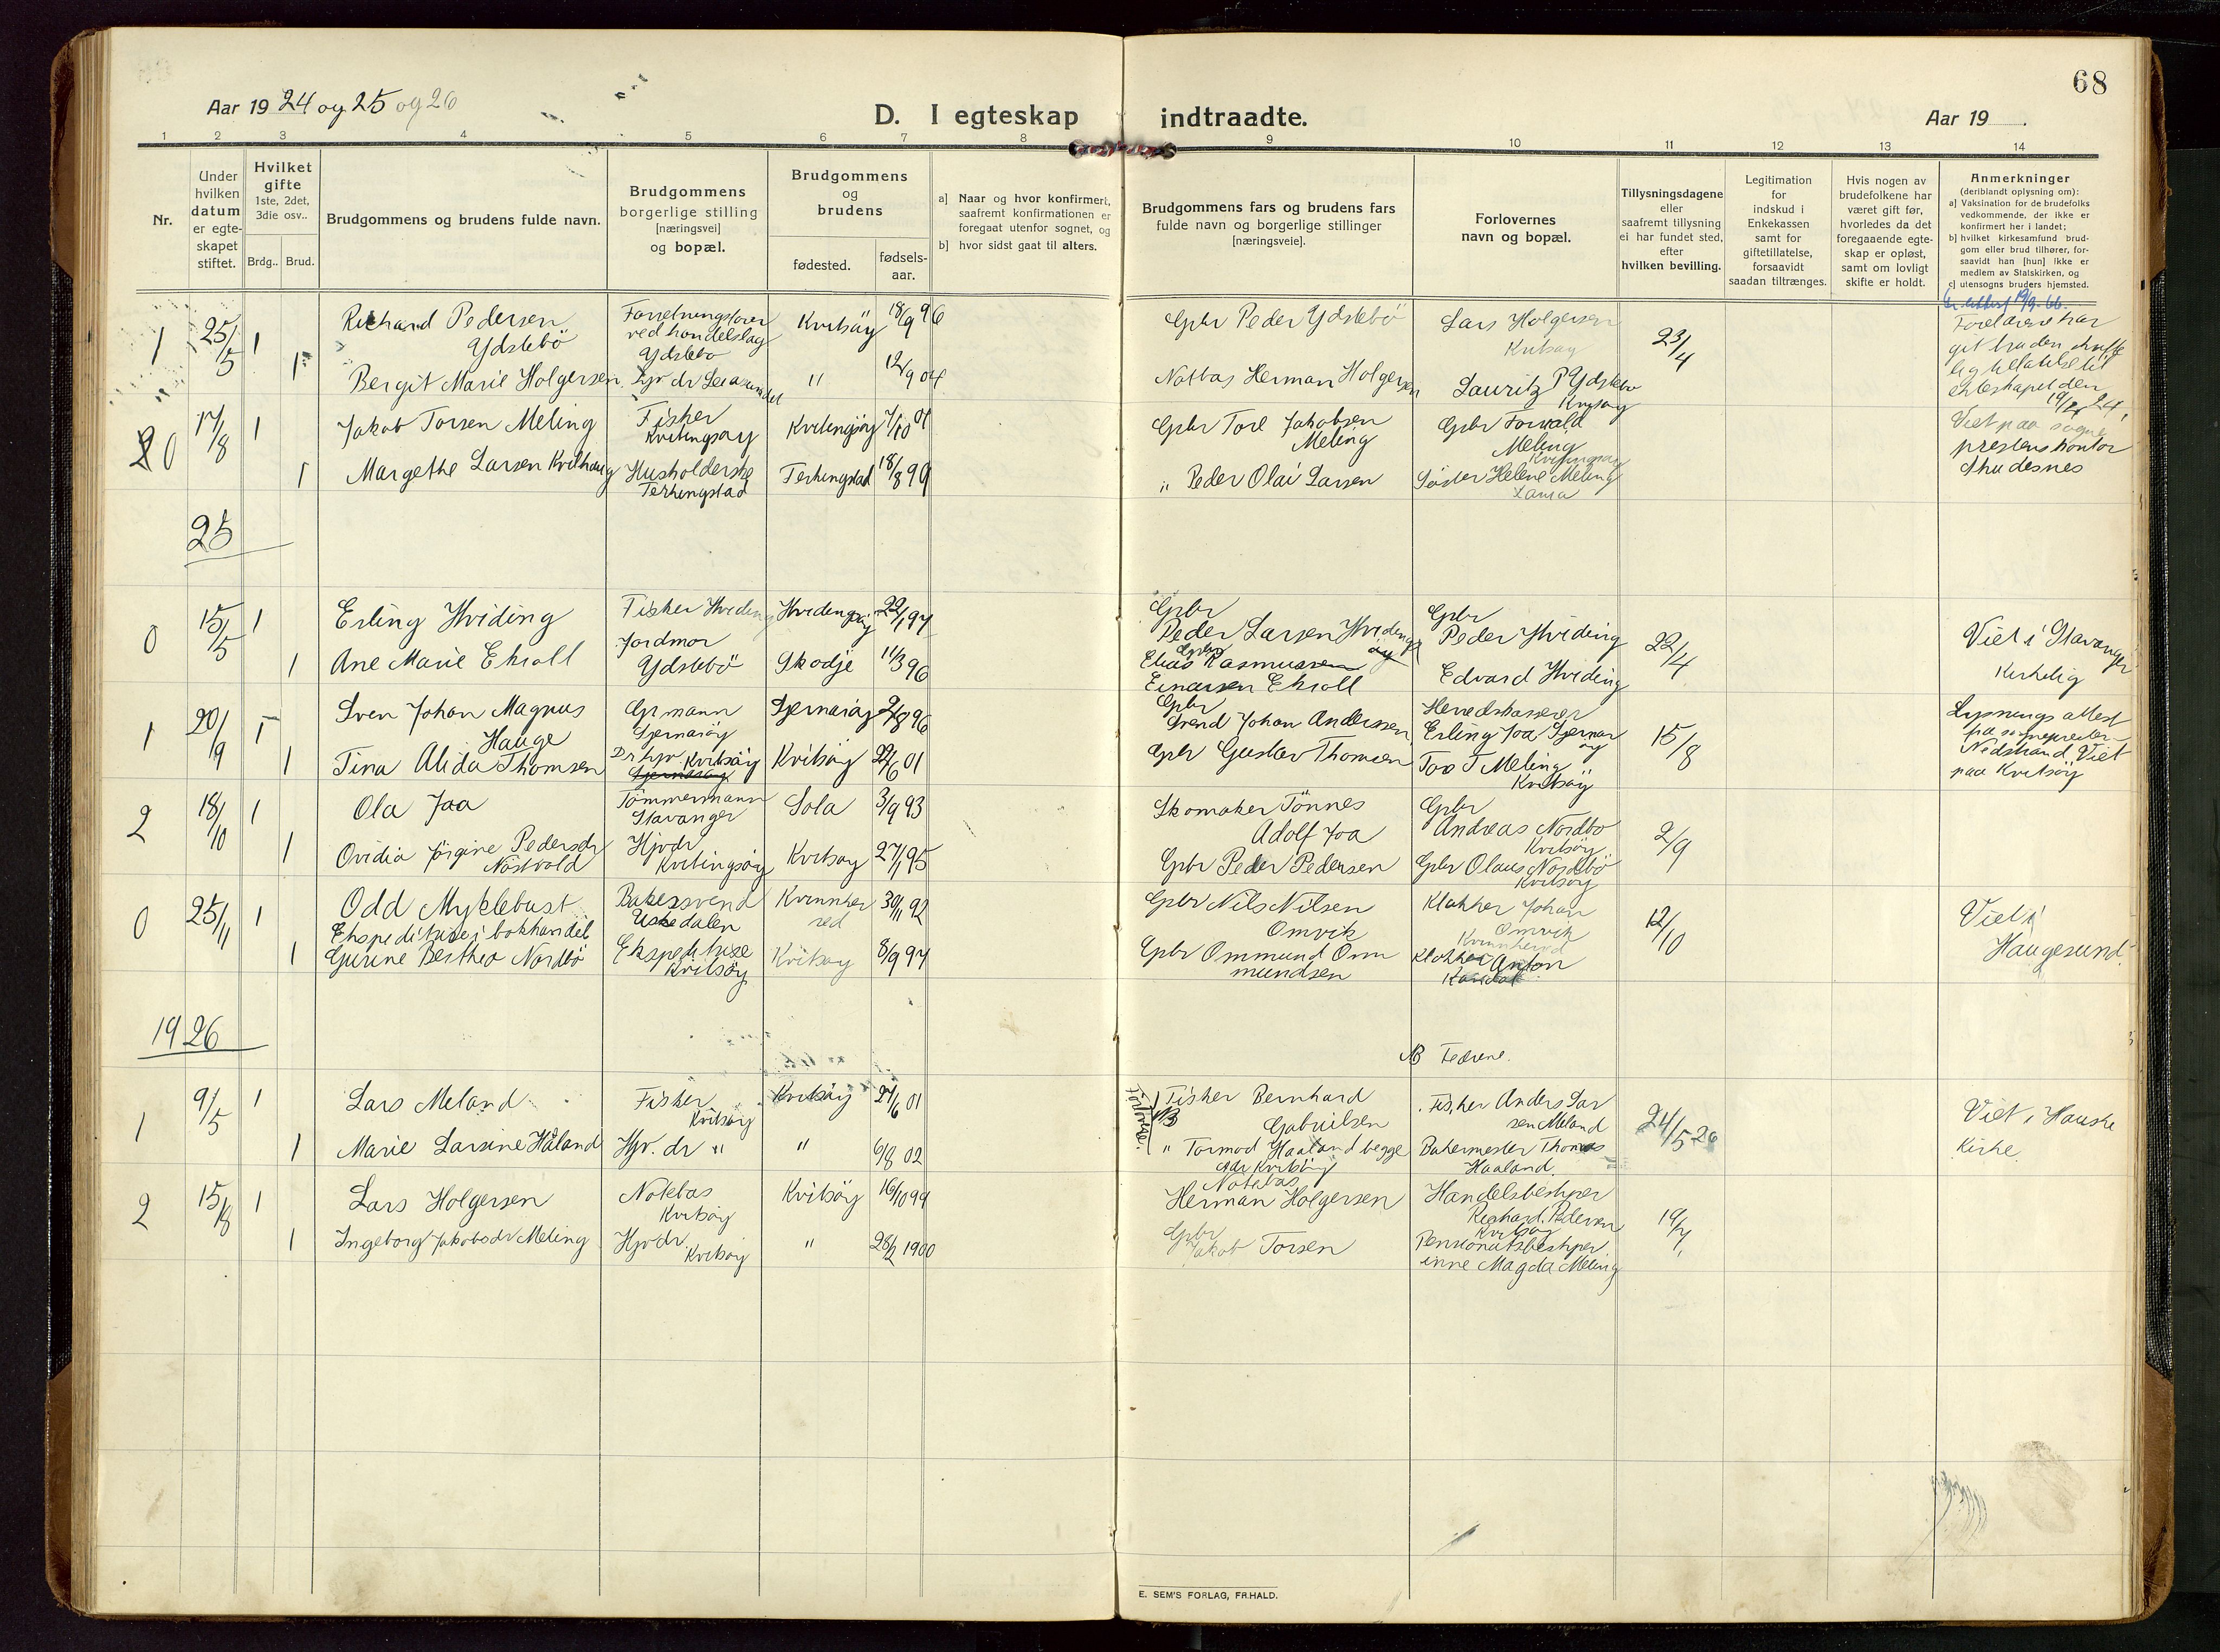 68
Aar 19 24 og 25 og 26
D. I egteskap indtraadte.
Aar 19
1 2 3 4 5 6 7 8 9 10 11 12 13 14
Nr.
Under hvilken datum er egteskapet stiftet.
Hvilket gifte
1ste, 2det, 3die osv..
Brdg.. Brud.
Brudgommens og brudens fulde navn.
Brudgommens borgerlige stilling [næringsvei] og bopæl.
Brudgommens og brudens
fødested.
fødsels-aar.
a] Naar og hvor konfirmert, saafremt konfirmationen er foregaat utenfor sognet, og
b] hvor sidst gaat til alters.
Brudgommens fars og brudens fars fulde navn og borgerlige stillinger [næringsveie].
Forlovernes navn og bopæl.
Tillysningsdagene eller saafremt tillysning ei har fundet sted, efter hvilken bevilling.
Legitimation for indskud i Enkekassen samt for giftetillatelse, forsaavidt saadan tiltrænges.
Hvis nogen av brudefolkene har været gift før, hvorledes da det foregaaende egteskap er opløst, samt om lovligt skifte er holdt.
Anmerkninger
(deriblandt oplysning om):
a] Vaksination for de brudefolks vedkommende, der ikke er konfirmert her i landet;
b] hvilket kirkesamfund brudgom eller brud tilhører, forsaavidt han [hun] ikke er medlem av Statskirken, og
c] utensogns bruders hjemsted.
1 25/5 1 Richard Pedersen Ydstebö
Forretningsfører ved handelslag Ydstebö
Kvitsöy 18/9 96
Gbr Peder Ydstebö
Lars Holgersen Kvitsöy
23/4
Foreldrene har git bruden skriftlig tillatelse til egteskapet den 19/4 24.
1 Bergit Marie Holgersen
" 12/9 04
Notbas Herman Holgersen
Lauritz P Ydstebö Kvitsöy
0 17/8 1 Jakob Torsen Meling
Fisker Kvitingsøy
Kvitingsöy 7/10 01
Gbr Tore Jakobsen Meling
Gbr Torvald Meling Kvitingsøy
Viet paa sogneprestens kontor Skudesnes
1 Margethe Larsen Kvilhaug
Husholderske Ferkingstad
Ferkingstad 18/8 99
" Peder Olai Larsen
Søster Helene Meling
25
0 15/5 1 Erling Hviding
Fisker Hviding
Hvidingsöy 22/1 97
Gbr Peder Larsen Hvidingsöy
Gbr Peder Hviding
22/4
Viet i Stavanger Kirkelig
1 Ane Marie Ekroll
Jordmor Ydstebö
Skodje 11/3 96
Gbr Elias Rasmussen
Einarsen Ekroll
Edvard Hviding
1 20/9 1 Sven Johan Magnus Hauge
Grmann Sjernaröy
Sjernaröy 2/8 96
Gbr Svend Johan Anderssen
Herredskasserer Erling Joa Sjernaröy
15/8
Lysnings attest fra sogneprester Nedstrand Viet paa Kvitsöy
1 Tina Alida Thomsen
Kvitsöy
Kvitsöy 29/6 01
Gbr Gustav Thomsen
Tor T Meling Kvitsöy
2 18/10 1 Ola Joa
Tömmermann Stavanger
Sola 3/9 93
Skomaker Tönnes Adolf Joa
Gbr Andreas Nordbö Kvitsöy
2/9
1 Ovidia Jörgine Pedersdr Nöstvold
Hjvdr Kvitingsöy
Kvitsøy 27/1 95
Gbr Peder Pedersen
Gbr Olaus Nordbö Kvitsöy
0 25/11 1 Odd Myklebust
Bakersvend Uskedalen
Kvinnhered 30/11 92
Gbr Nils Nilsen Omvik
Klokker Johan Omvik Kvinnherred
12/10
Viet i Haugesund
Ekspeditrise i bokhandel
1 Gurine Berthea Nordbö
Ekspeditrise Kvitsöy
Kvitsöy 8/9 97
Gbr Ommund Ommundsen
Klokker Anton
1926
NB Fedrene.
1 9/5 1 Lars Meland
Fisker Kvitsöy
Kvitsöy 27/6 01
Forlovere. NB
Fisker Bernhard Gabrielsen
Fisker Anders Larsen Meland
24/5 26
Viet i Hauske Kirke
1 Marie Larsine Håland
Hjv. dr "
" 6/8 02
" Tormod Haaland begge Kvitsöy
Bakermester Thomas Haaland
2 15/8 1 Lars Holgersen
Notebas Kvitsöy
Kvitsöy 16/10 99
Notebas Herman Holgersen
Handelsbestyrer Richard Pedersen Kvitsöy
19/7
1 Ingeborg Jakobsdr Meling
Hjvdr Kvitsöy
" 28/2 1900
Gbr Jakob Torsen
Pensionatsbestyrerinne Magda Meling
E. SEM'S FORLAG, FR.HALD.